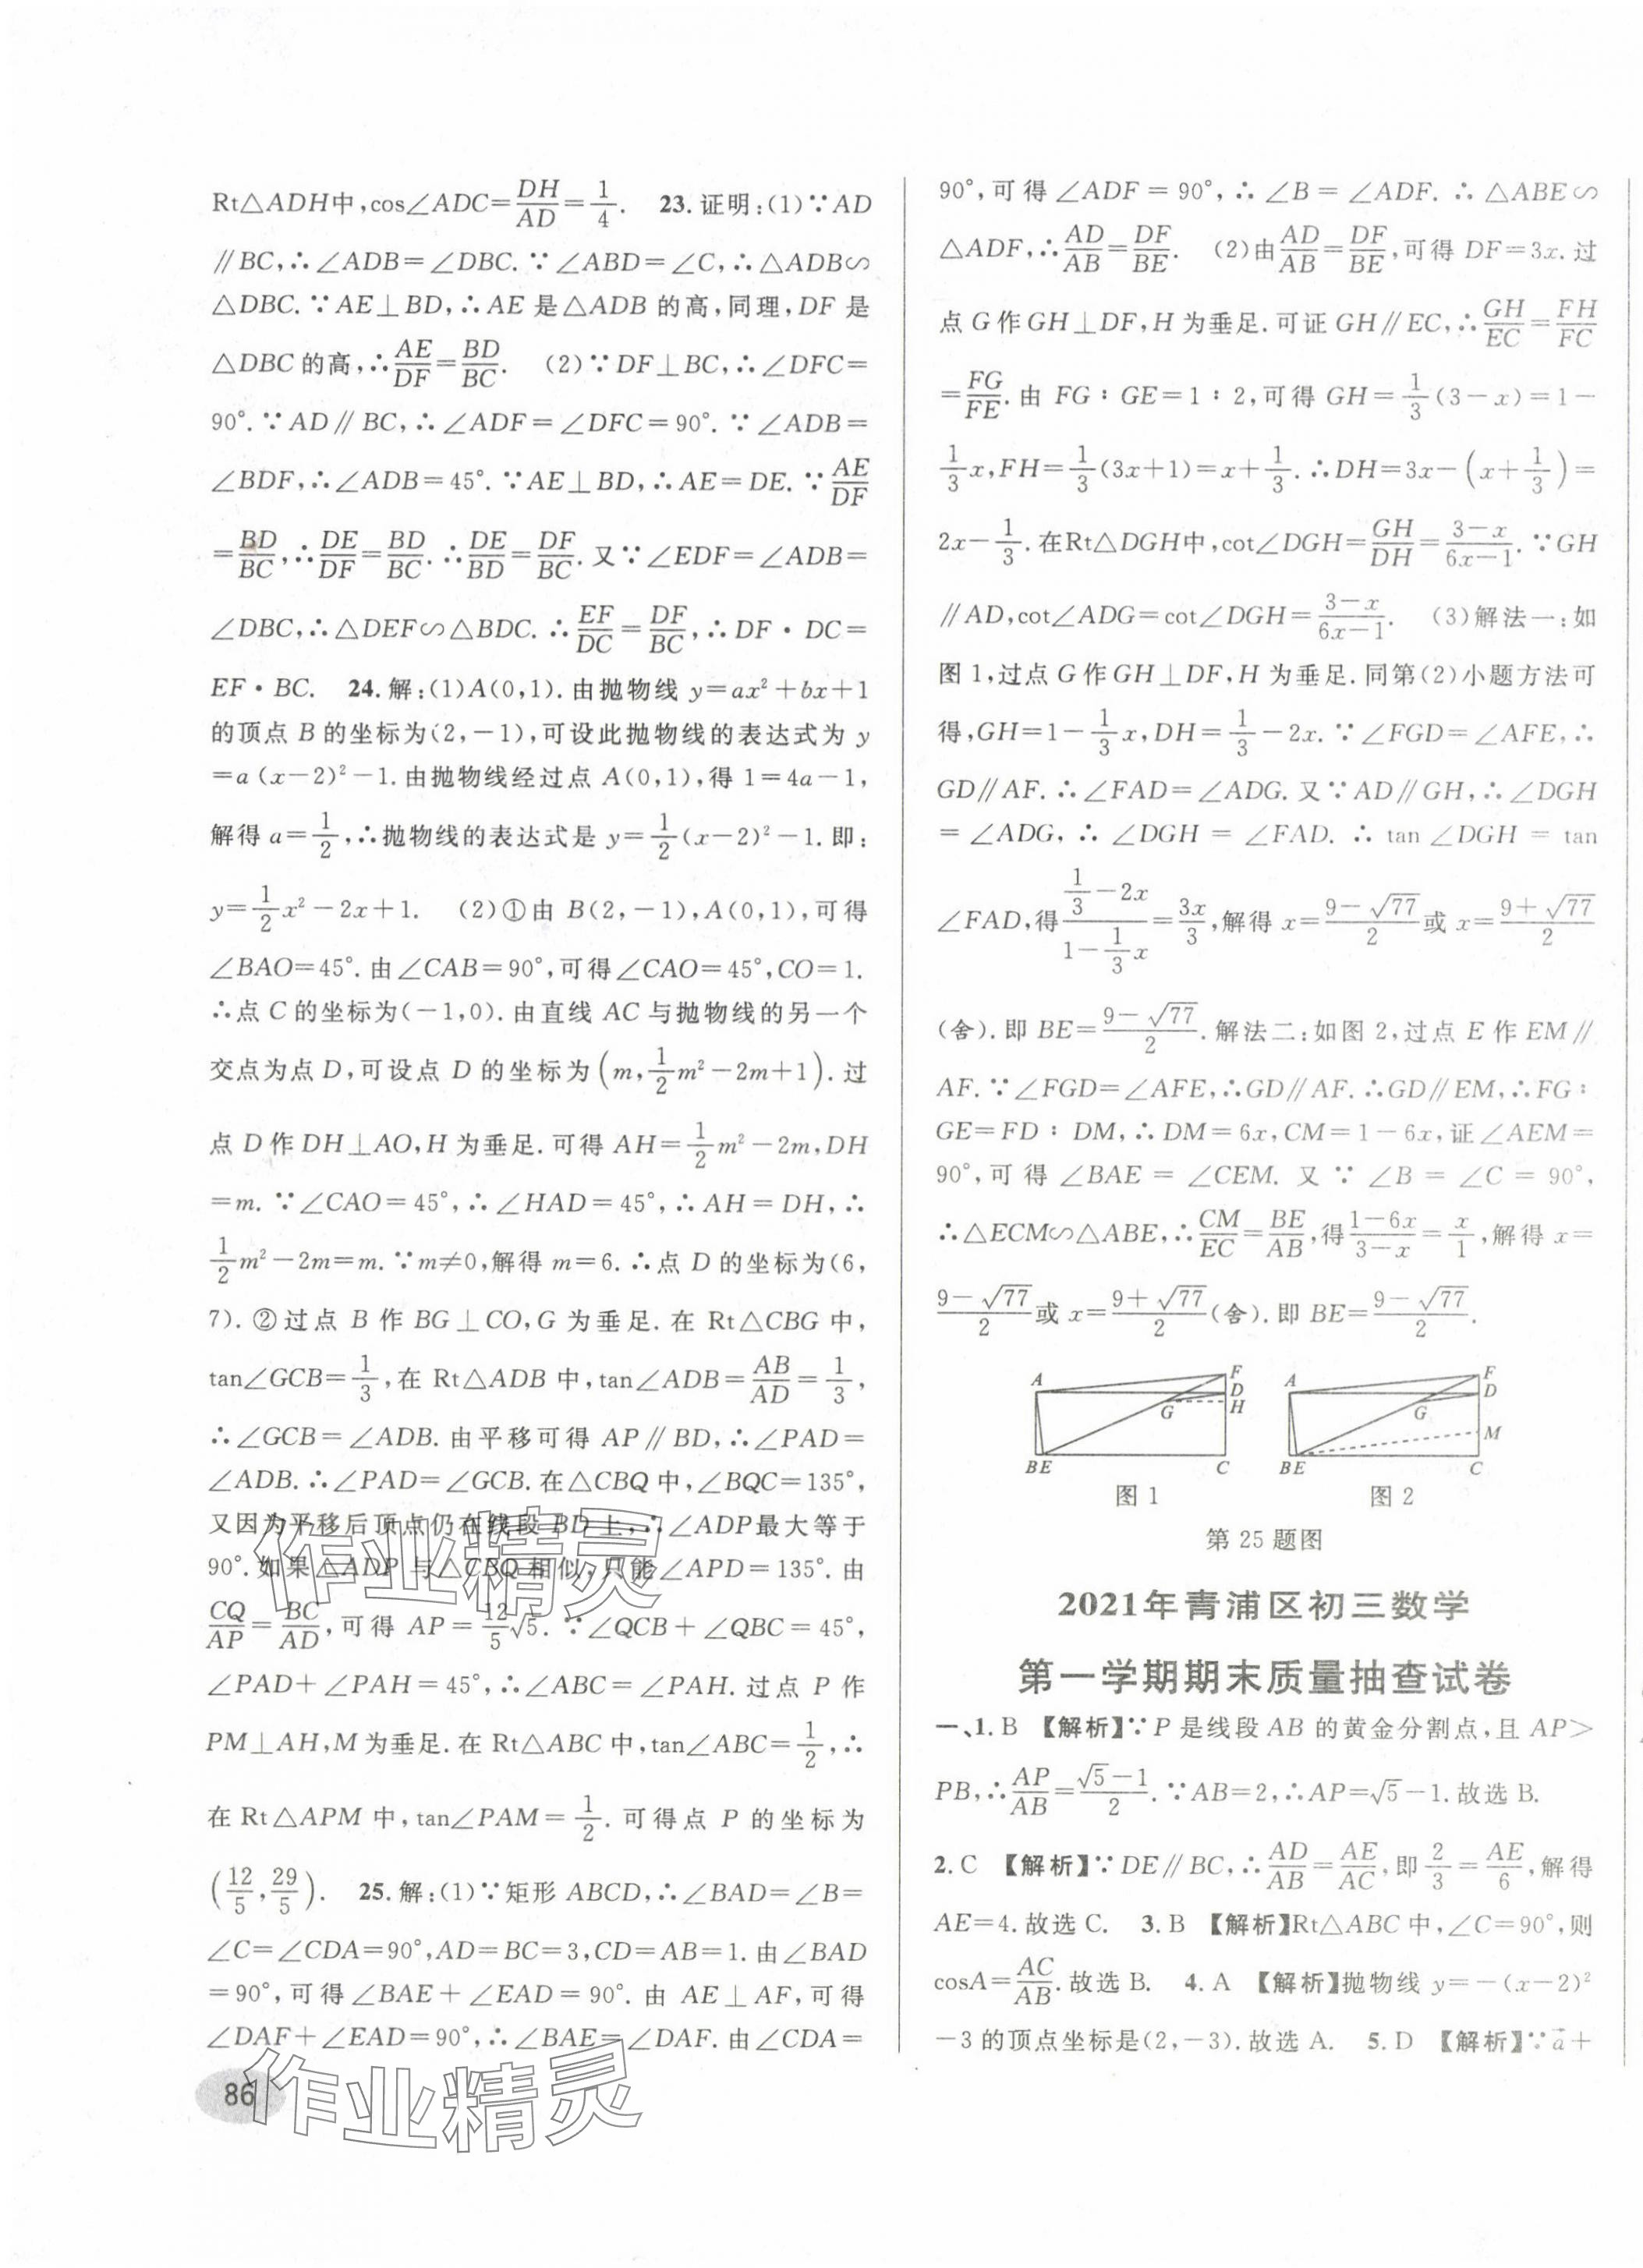 Rt△ADH中,cos∠ADC=DH/AD=1/4. 23.证明:(1)∵AD
∥BC,∴∠ADB=∠DBC.∵∠ABD=∠C,∴△ADB∽
△DBC.∵AE⊥BD,∴AE是△ADB的高,同理,DF是
△DBC的高,∴AE/DF=BD/BC. (2)∵DF⊥BC,∴∠DFC=
90°.∵AD∥BC,∴∠ADF=∠DFC=90°.∵∠ADB=
∠BDF,∴∠ADB=45°.∵AE⊥BD,∴AE=DE.∵AE/DF
=BD/BC,∴DE/DF=BD/BC.∴DE/BD=DF/BC.又∵∠EDF=∠ADB=
∠DBC,∴△DEF∽△BDC.∴EF/DC=DF/BC,∴DF·DC=
EF·BC. 24.解:(1)A(0,1).由抛物线y=ax²+bx+1
的顶点B的坐标为(2,-1),可设此抛物线的表达式为y
=a(x-2)²-1.由抛物线经过点A(0,1),得1=4a-1,
解得a=1/2,∴抛物线的表达式是y=1/2(x-2)²-1.即:
y=1/2x²-2x+1. (2)①由B(2,-1),A(0,1),可得
∠BAO=45°.由∠CAB=90°,可得∠CAO=45°,CO=1.
∴点C的坐标为(-1,0).由直线AC与抛物线的另一个
交点为点D,可设点D的坐标为(m,1/2m²-2m+1).过
点D作DH⊥AO,H为垂足.可得AH=1/2m²-2m,DH
=m.∵∠CAO=45°,∴∠HAD=45°,∴AH=DH,∴
1/2m²-2m=m.∵m≠0,解得m=6.∴点D的坐标为(6,
7).②过点B作BG⊥CO,G为垂足.在Rt△CBG中,
tan∠GCB=1/3,在Rt△ADB中,tan∠ADB=AB/AD=1/3,
∴∠GCB=∠ADB.由平移可得AP∥BD,∴∠PAD=
∠ADB.∴∠PAD=∠GCB.在△CBQ中,∠BQC=135°,
又因为平移后顶点仍在线段BD上,∴∠ADP最大等于
90°.如果△ADP与△CBQ相似,只能∠APD=135°.由
CQ/AP=BC/AD,可得AP=12/5√5.∵∠QCB+∠QBC=45°,
∠PAD+∠PAH=45°,∴∠ABC=∠PAH.过点P作
PM⊥AH,M为垂足.在Rt△ABC中,tan∠ABC=1/2,∴
在Rt△APM中,tan∠PAM=1/2.可得点P的坐标为
(12/5,29/5). 25.解:(1)∵矩形ABCD,∴∠BAD=∠B=
∠C=∠CDA=90°,AD=BC=3,CD=AB=1.由∠BAD
=90°,可得∠BAE+∠EAD=90°.由AE⊥AF,可得
∠DAF+∠EAD=90°,∴∠BAE=∠DAF.由∠CDA=
86
作业精灵
作业精灵
90°,可得∠ADF=90°,∴∠B=∠ADF.∴△ABE∽
△ADF,∴AD/AB=DF/BE. (2)由AD/AB=DF/BE,可得DF=3x.过
点G作GH⊥DF,H为垂足.可证GH∥EC,∴GH/EC=FH/FC
=FG/FE.由FG∶GE=1∶2,可得GH=1/3(3-x)=1-
1/3x,FH=1/3(3x+1)=x+1/3.∴DH=3x-(x+1/3)=
2x-1/3.在Rt△DGH中,cot∠DGH=GH/DH=3-x/6x-1.∵GH
∥AD,cot∠ADG=cot∠DGH=3-x/6x-1. (3)解法一:如
图1,过点G作GH⊥DF,H为垂足.同第(2)小题方法可
得,GH=1-1/3x,DH=1/3-2x.∵∠FGD=∠AFE,∴
GD∥AF.∴∠FAD=∠ADG.又∵AD∥GH,∴∠DGH
=∠ADG,∴∠DGH=∠FAD.∴tan∠DGH=tan
∠FAD,得(1/3-2x)/(1-1/3x)=3x/3,解得x=9-√77/2或x=9+√77/2
(舍).即BE=9-√77/2.解法二:如图2,过点E作EM∥
AF.∵∠FGD=∠AFE,∴GD∥AF.∴GD∥EM,∴FG∶
GE=FD∶DM,∴DM=6x,CM=1-6x,证∠AEM=
90°,可得∠BAE=∠CEM.又∵∠B=∠C=90°,
∴△ECM∽△ABE,∴CM/EC=BE/AB,得1-6x/3-x=x/1,解得x=
9-√77/2或x=9+√77/2(舍).即BE=9-√77/2.
A F D H G B E C
图1
A F D G M B E C
图2
第25题图
2021年青浦区初三数学
第一学期期末质量抽查试卷
一、1.B 【解析】∵P是线段AB的黄金分割点,且AP>
PB,∴AP/AB=√5-1/2.∵AB=2,∴AP=√5-1.故选B.
2.C 【解析】∵DE∥BC,∴AD/AB=AE/AC,即2/3=AE/6,解得
AE=4.故选C. 3.B 【解析】Rt△ABC中,∠C=90°,则
cosA=AC/AB.故选B. 4.A 【解析】抛物线y=-(x-2)²
-3的顶点坐标是(2,-3).故选A. 5.D 【解析】∵a⃗+